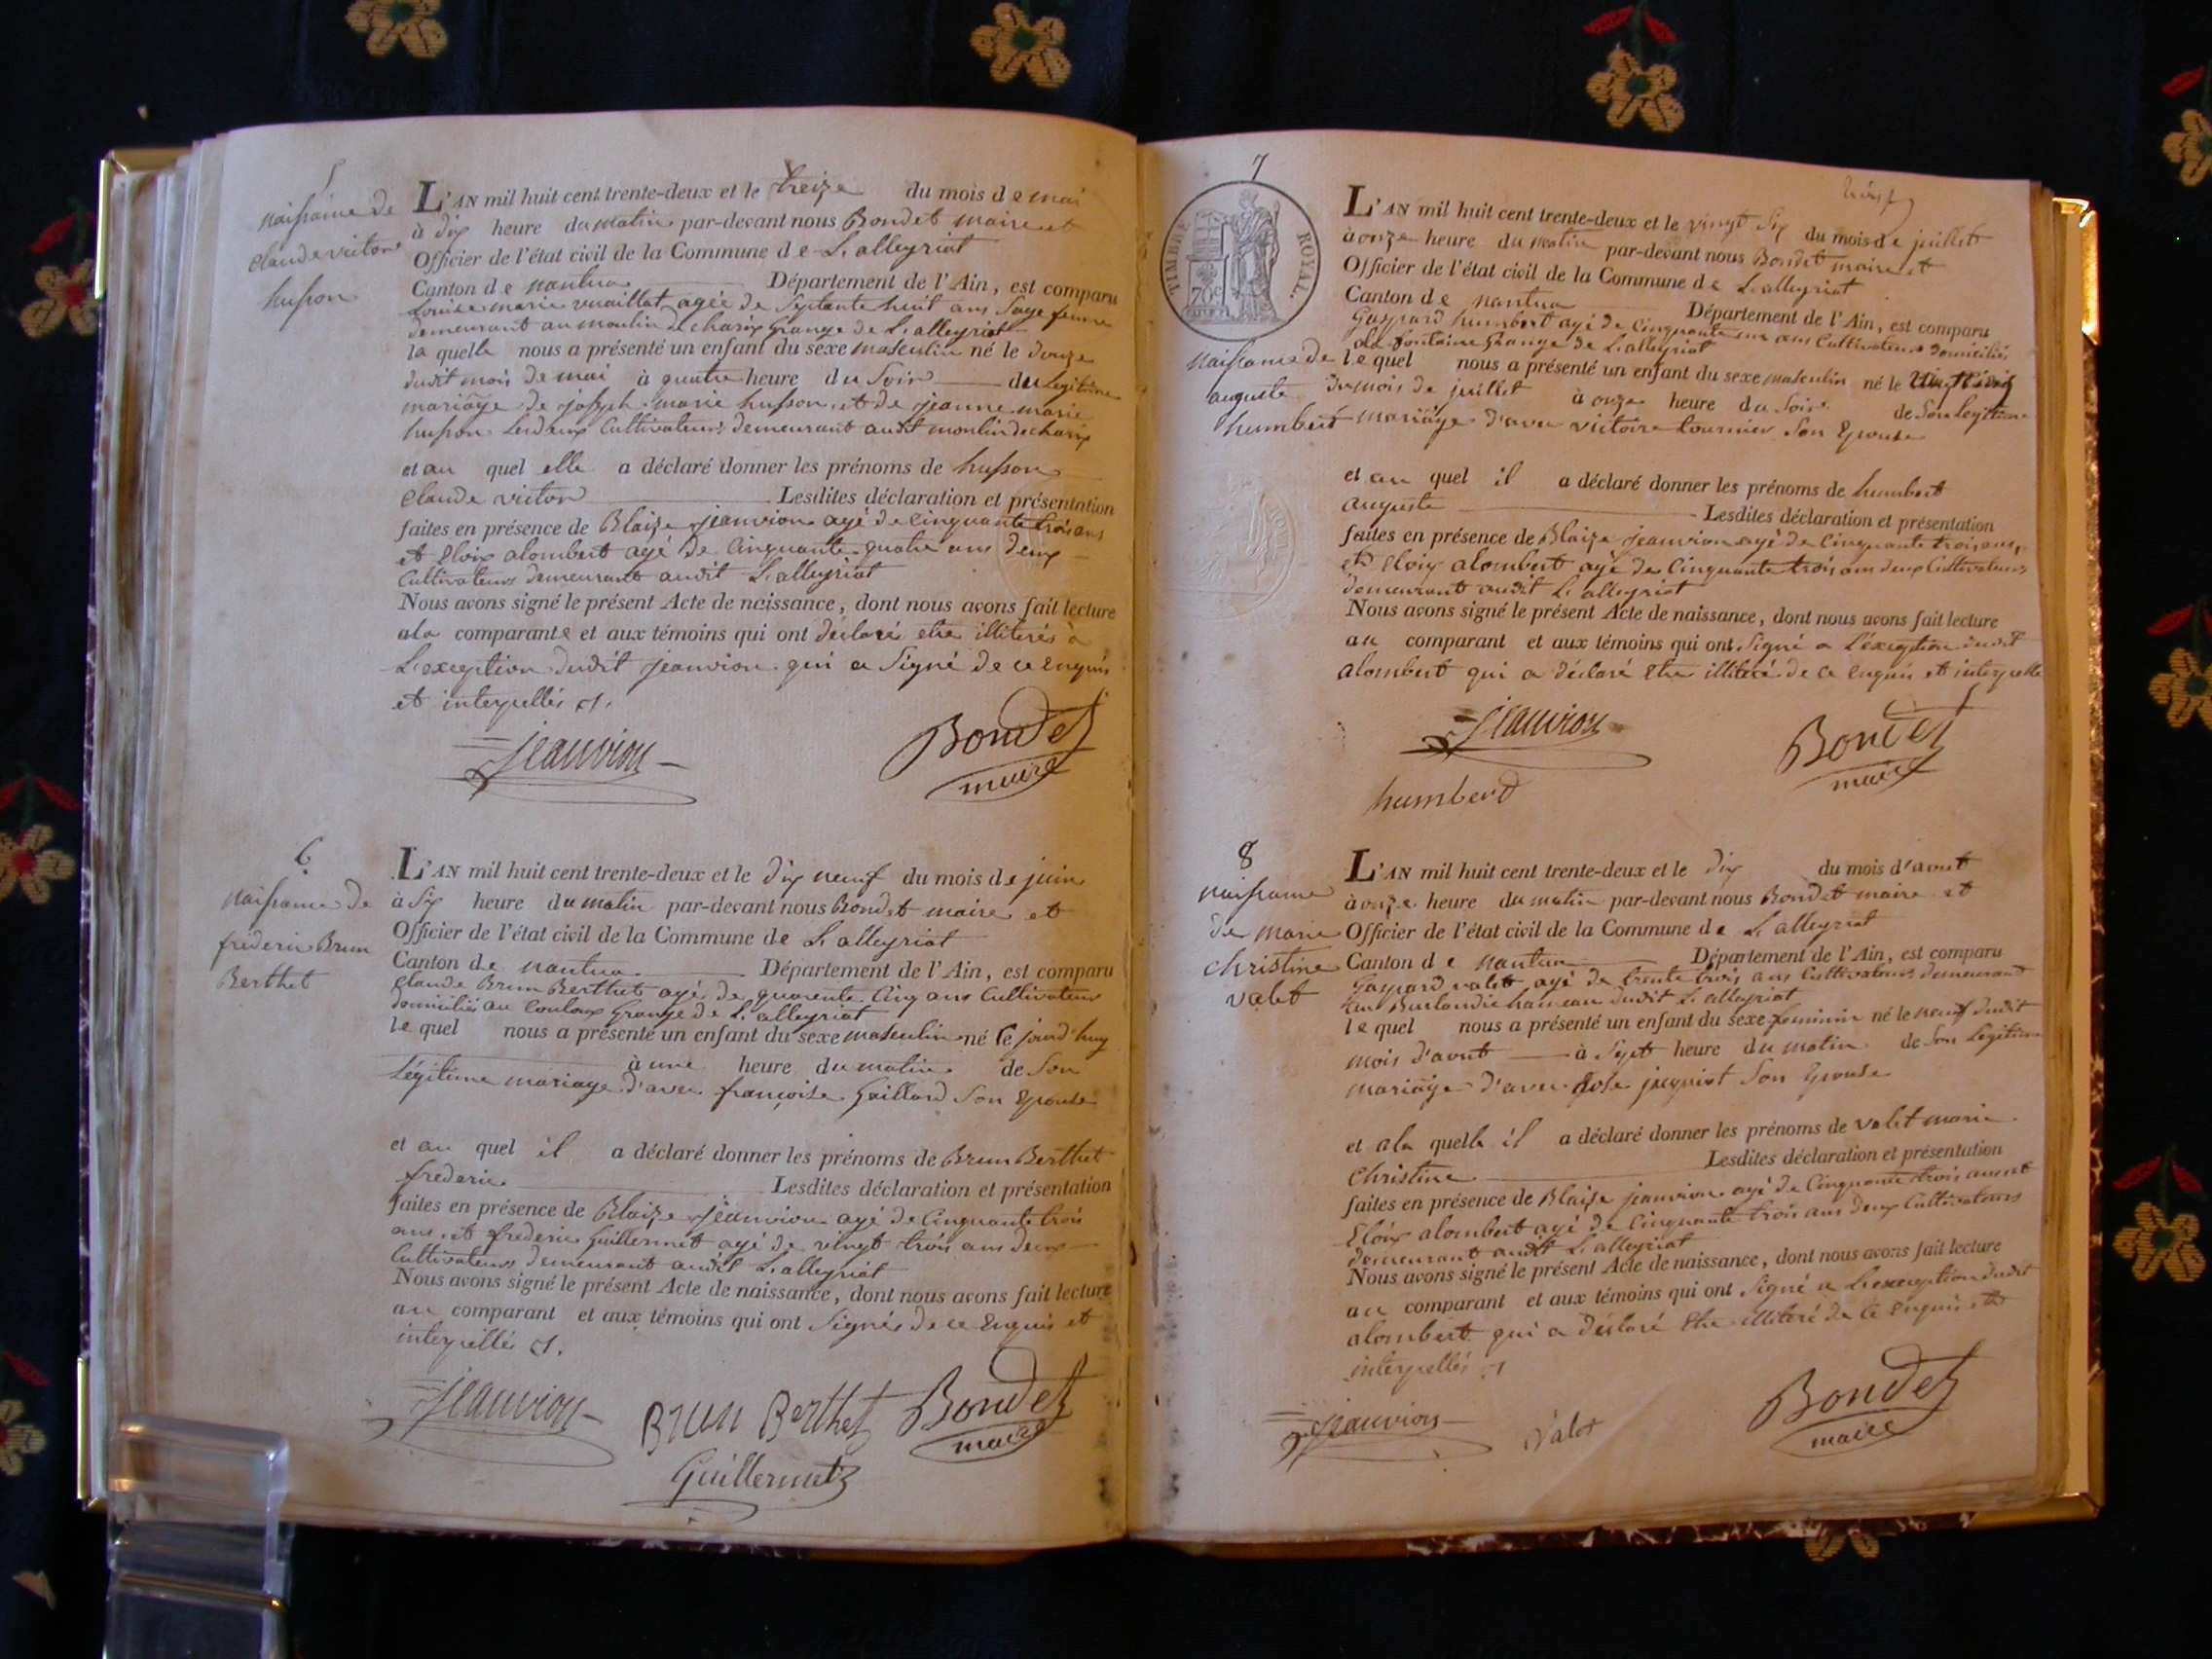 5
naissance de
claude victor
husson
L'AN mil huit cent trente-deux et le treize du mois de mai
à dix heure du matin par-devant nous Bondet maire et
Officier de l'état civil de la Commune de L'alleyriat
Canton de nantua Département de l'Ain, est comparu
Louise marie vuaillat agée de Septante huit ans Sage femme
demeurant au moulin de charix Grange de L'alleyriat
la quelle nous a présenté un enfant du sexe masculin né le douze
dudit mois de mai à quatre heure du Soir du Legitime
mariage de joseph marie husson et de jeanne marie
husson Les deux Cultivateurs demeurant audit moulin de charix
et au quel elle a déclaré donner les prénoms de husson
Claude victor Lesdites déclaration et présentation
faites en présence de Blaize jeanvion agé de Cinquante trois ans
et Eloix alombert agé de Cinquante quatre ans deux
Cultivateurs demeurant audit L'alleyriat
Nous avons signé le présent Acte de naissance, dont nous avons fait lecture
a la comparante et aux témoins qui ont déclaré etre illiterés à
L'exception dudit jeanvion qui a Signé de ce Enquis
et interpellés
jeanvion Bondet
maire
6
naissance de
frederic Brun
Berthet
L'AN mil huit cent trente-deux et le dix neuf du mois de juin
à Six heure du matin par-devant nous Bondet maire et
Officier de l'état civil de la Commune de L'alleyriat
Canton de nantua Département de l'Ain, est comparu
Claude Brun Berthet agé de quarente Cinq ans Cultivateur
domicilié au Coulou Grange de L'alleyriat
le quel nous a présenté un enfant du sexe masculin né le jourd'huy
à une heure du matin de Son
Legitime mariage d'avec françoise Gaillard Son Epouse
et au quel il a déclaré donner les prénoms de Brun Berthet
frederic Lesdites déclaration et présentation
faites en présence de Blaize jeanvion agé de Cinquante trois
ans et frederic Guillermet agé de vingt trois ans deux
Cultivateurs demeurant audit L'alleyriat
Nous avons signé le présent Acte de naissance, dont nous avons fait lecture
au comparant et aux témoins qui ont Signés de ce Enquis et
interpellés
jeanvion Brun Berthet Bondet
maire
Guillermet
7
TIMBRE ROYAL.
70c
naissance de
auguste
humbert
L'AN mil huit cent trente-deux et le vingt Six du mois de juillet
à onze heure du matin par-devant nous Bondet maire et
Officier de l'état civil de la Commune de L'alleyriat
Canton de nantua Département de l'Ain, est comparu
Gaspard humbert agé de Cinquante un ans Cultivateur domicilié
a la fontaine Grange de L'alleyriat
le quel nous a présenté un enfant du sexe masculin né le
du mois de juillet à onze heure du Soir de Son Legitime
mariage d'avec victoire tournier Son Epouse
et au quel il a déclaré donner les prénoms de humbert
auguste Lesdites déclaration et présentation
faites en présence de Blaize jeanvion agé de Cinquante trois ans,
et Eloix alombert agé de Cinquante trois ans deux Cultivateurs
demeurant audit L'alleyriat
Nous avons signé le présent Acte de naissance, dont nous avons fait lecture
au comparant et aux témoins qui ont Signé a L'exception dudit
alombert qui a déclaré Etre illiteré de ce Enquis et interpellé
jeanvion Bondet
maire
humberd
8
naissance
de marie
christine
valet
L'AN mil huit cent trente-deux et le dix du mois d'aout
à onze heure du matin par-devant nous Bondet maire et
Officier de l'état civil de la Commune de L'alleyriat
Canton de nantua Département de l'Ain, est comparu
Gaspard valet agé de trente trois ans Cultivateur demeurant
en Burlandie hameau dudit L'alleyriat
le quel nous a présenté un enfant du sexe feminin né le neuf dudit
mois d'aout à Sept heure du matin de Son Legitime
mariage d'avec Rose juyriat Son Epouse
et a la quelle il a déclaré donner les prénoms de valet marie
Christine Lesdites déclaration et présentation
faites en présence de Blaize jeanvion agé de Cinquante trois ans et
Eloix alombert agé de Cinquante trois ans deux Cultivateurs
demeurant audit L'alleyriat
Nous avons signé le présent Acte de naissance, dont nous avons fait lecture
au comparant et aux témoins qui ont Signé a L'exception dudit
alombert qui a déclaré Etre illiteré de ce Enquis et
interpellés
jeanvion valet Bondet
maire